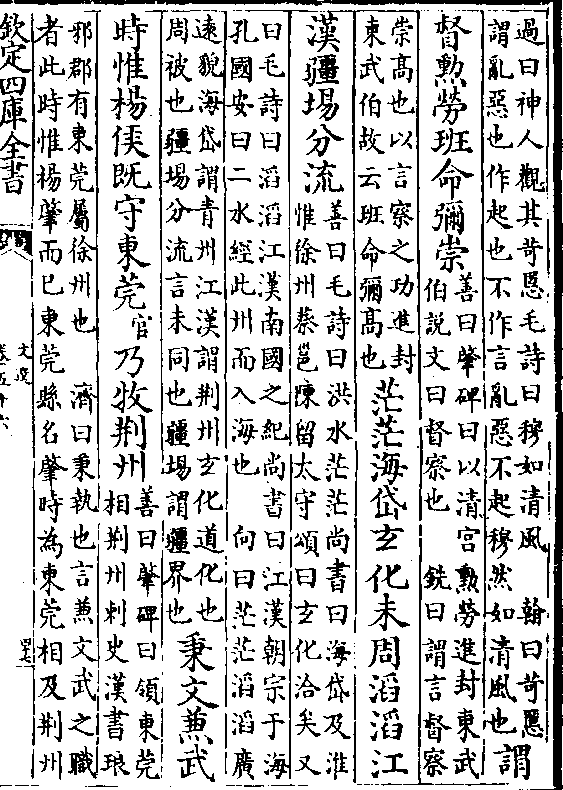 過曰神人觀其苛慝毛詩曰穆如清風　翰曰苛慝
謂亂惡也作起也不作言亂惡不起穆然如清風也
謂
督勲勞班命彌崇
善曰肇碑曰以清宫勲勞進封東武
伯説文曰督察也　銑曰謂言督察
崇髙也以言察之功進封
東武伯故云班命彌髙也
茫茫海岱玄化未周滔滔江
漢疆埸分流
善曰毛詩曰洪水茫茫尚書曰海岱及淮
惟徐州蔡邕陳留太守頌曰玄化洽矣又
曰毛詩曰滔滔江漢南國之紀尚書曰江漢朝宗于海
孔國安曰二水經此州而入海也　向曰茫茫滔滔廣
逺貌海岱謂青州江漢謂荆州玄化道化也
周被也疆埸分流言未同也疆埸謂疆界也
秉文兼武
時惟楊侯既守東莞官乃牧荆州
善曰肇碑曰領東莞
相荆州刺史漢書琅
邪郡有東莞屬徐州也　濟曰秉執也言兼文武之職
者此時惟楊肇而已東莞縣名肇時為東莞相及荆州
欽定四庫全書
文選
卷五十六